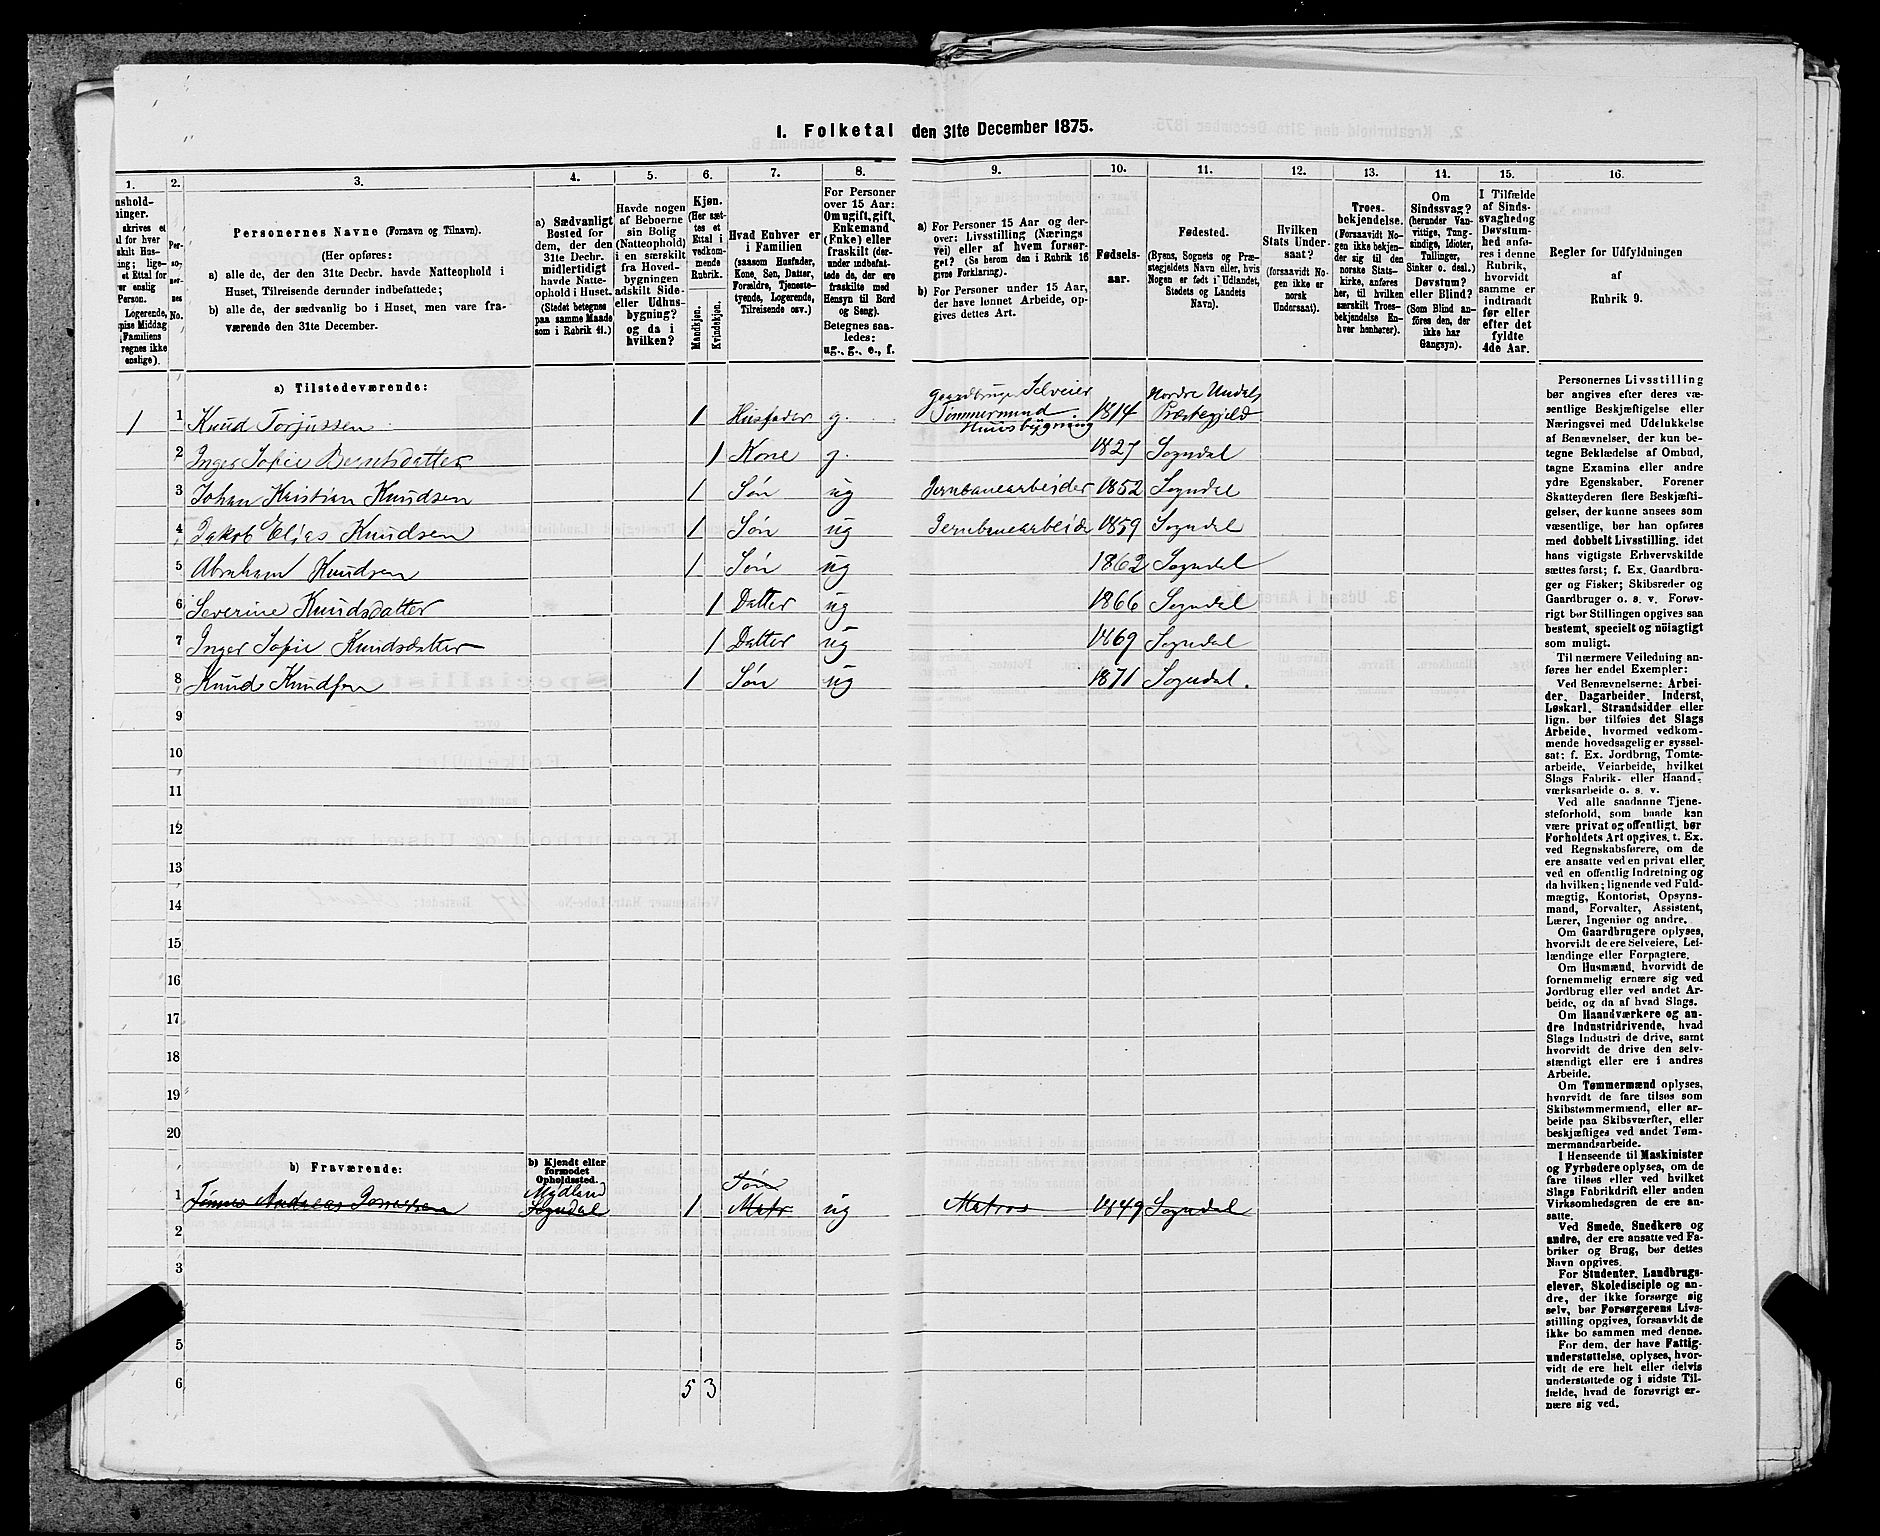 1. Folketal den 31te December 1875.
1. 2. 3. 4. 5. 6. 7. 8. 9. 10. 11. 12. 13. 14. 15. 16.
Personernes Navne (Fornavn og Tilnavn).
(Her opføres:
a) alle de, der den 31te Decbr. havde Natteophold i
Huset, Tilreisende derunder indbefattede;
b) alle de, der sædvanlig bo i Huset, men vare fra-
værende den 31te December.
a) Sædvanligt
Bosted for
dem, der den
31te Decbr.
midlertidigt
havde Natte-
ophold i
Huset.
(Stedet betegnes
paa samme Maade
som i Rubrik 11.)
Havde nogen
af Beboerne
sin Bolig
(Natteophold)
i en særskilt
fra Hoved-
bygningen
adskilt Side-
eller Udhus-
bygning?
og da i
hvilken?
Kjøn.
(Her sæt-
tes et
Ettal i
vedkom-
mende
Rubrik.
Mandkjøn.
Kvindekjøn.
Hvad Enhver er
i Familien
(saasom Husfader,
Kone, Søn, Datter,
Forældre, Tjeneste-
tyende, Logerende,
Tilreisende osv.)
For Personer
over 15 Aar:
Om ugift, gift,
Enkemand
(Enke) eller
fraskilt (der-
under indbefat-
tede de, der ere
fraskilte med
Hensyn til Bord
og Seng).
Betegnes saa-
ledes:
ug., g., e., f.
a) For Personer 15 Aar og der-
over: Livsstilling (Nærings
vei) eller af hvem forsør-
get? (Se herom den i Rubrik 16
givne Forklaring).
b) For Personer under 15 Aar,
der have lønnet Arbeide, op-
gives dettes Art.
Fødsels-
aar.
Fødested.
(Byens, Sognets og Præ-
stegjeldets Navn eller, hvis
Nogen er født i Udlandet,
Stedets og Landets
Navn).
Hvilken
Stats Under-
saat?
(forsaavidt No-
gen ikke er
norsk
Undersaat).
Troes-
bekjendelse.
(Forsaavidt No-
gen ikke bekjen-
der sig til den
norske Stats-
kirke, anføres
her, til hvilken
særskilt Troes-
bekjendelse En-
hver henhører).
Om
Sindssvag?
(herunder Van-
vittige, Tung-
sindige, Idioter,
Tullinger,
Sinker o. desl.)
Døvstum?
eller Blind?
(Som Blind an-
føres den, der
ikke har
Gangsyn).
I Tilfælde
af Sinds-
svaghed og
Døvstum-
hed anfø-
res i denne
Rubrik,
hvorvidt
samme er
indtraadt
før eller
efter det
fyldte
4de Aar.
Regler for Udfyldningen
af
Rubrik 9.
a) Tilstedeværende:
1 1 Knud Torjussen 1 Husfader g. Gaardbruger Selveier Tømmermand Huusbygning 1814 Nordre Undals Præstegjeld
2 Inger Sofie Berntsdatter 1 Kone g. 1827 Sogndal
3 Johan Kristian Knudsen 1 Søn ug Jernbanearbeider 1852 Sogndal
4 Jakob Elias Knudsen 1 Søn ug Jernbanearbeide 1859 Sogndal
5 Abraham Knudsen 1 Søn ug 1862 Sogndal
6 Severine Knudsdatter 1 Datter ug 1866 Sogndal
7 Inger Sofie Knudsdatter 1 Datter ug 1869 Sogndal
8 Knud Knudsen 1 Søn ug 1871 Sogndal.
9
10
11
12
13
14
15
16
17
18
19
20
b) Fraværende:
b) Kjendt eller
formodet
Opholdssted.
1 Andreas Mydland Sogndal 1 Søn Matr ug Matros 1849 Sogndal
2
3
5
6 5 3
Personernes Livsstilling
bør angives efter deres væ-
sentlige Beskjæftigelse eller
Næringsvei med Udelukkelse
af Benævnelser, der kun be-
tegne Beklædelse af Ombud,
tagne Examina eller andre
ydre Egenskaber. Forener
Skatteyderen flere Beskjæfti-
gelser, der kunne ansees som
væsentlige, bør han opføres
med dobbelt Livsstilling, idet
hans vigtigste Erhvervskilde
sættes først; f. Ex. Gaardbru-
ger og Fisker; Skibsreder og
Gaardbruger o. s. v. Forøv-
rigt bør Stillingen opgives saa
bestemt, specielt og nöiagtigt
som muligt.
Til nærmere Veiledning an-
føres her endel Exempler:
Ved Benævnelserne: Arbei-
der, Dagarbeider, Inderst,
Løskarl, Strandsidder eller
lign. bør tilføies det Slags
Arbeide, hvormed vedkom-
mende hovedsagelig er syssel-
sat; f. Ex. Jordbrug, Tomte-
arbeide, Veiarbeide, hvilket
Slags Fabrik- eller Haand-
værksarbeide o. s. v.
Ved alle saadanne Tjene-
steforhold, som baade kan
være privat og offentligt, bør
Forholdets Art opgives, t. Ex.
ved Regnskabsførere, om de
ere ansatte ved en privat eller
ved en offentlig Indretning og
da hvilken; lignende ved Fuld-
mægtig, Kontorist, Opsyns-
mand, Forvalter, Assistent,
Lærer, Ingeniør og andre.
Om Gaardbrugere oplyses,
hvorvidt de ere Selveiere, Lei-
lændinge eller Forpagtere.
Om Husmænd, hvorvidt de
fornemmelig ernære sig ved
Jordbrug eller ved andet Ar-
beide, og da af hvad Slags.
Om Haandværkere og an-
dre Industridrivende, hvad
Slags Industri de drive, samt
hvorvidt de drive den selv-
stændigt eller ere i andres
Arbeide.
Om Tømmermænd oplyses,
hvorvidt de fare tilsøs som
Skibstømmermænd, eller ar-
beide paa Skibsværfter, eller
beskjæftiges ved andet Tøm-
mermandsarbeide.
I Henseende til Maskinister
og Fyrbødere oplyses, om de
fare tilsøs eller ved hvilket
Slags Fabrikdrift eller anden
Virksomhedsgren de ere an-
satte.
Ved Smede, Snedkere og
andre, der ere ansatte ved Fa-
briker og Brug, bør dettes
Navn opgives.
For Studenter, Landbrugs-
elever, Skoledisciple og an-
dre, der ikke forsørge sig
selv, bør Forsørgerens Livs-
stilling opgives, forsaavidt de
ikke bo sammen med denne.
For dem, der have Fattig-
understøttelse, oplyses, hvor-
vidt de ere helt eller delvis
understøttede og i sidste Til-
fælde, hvad de forøvrigt er-
nære sig ved.